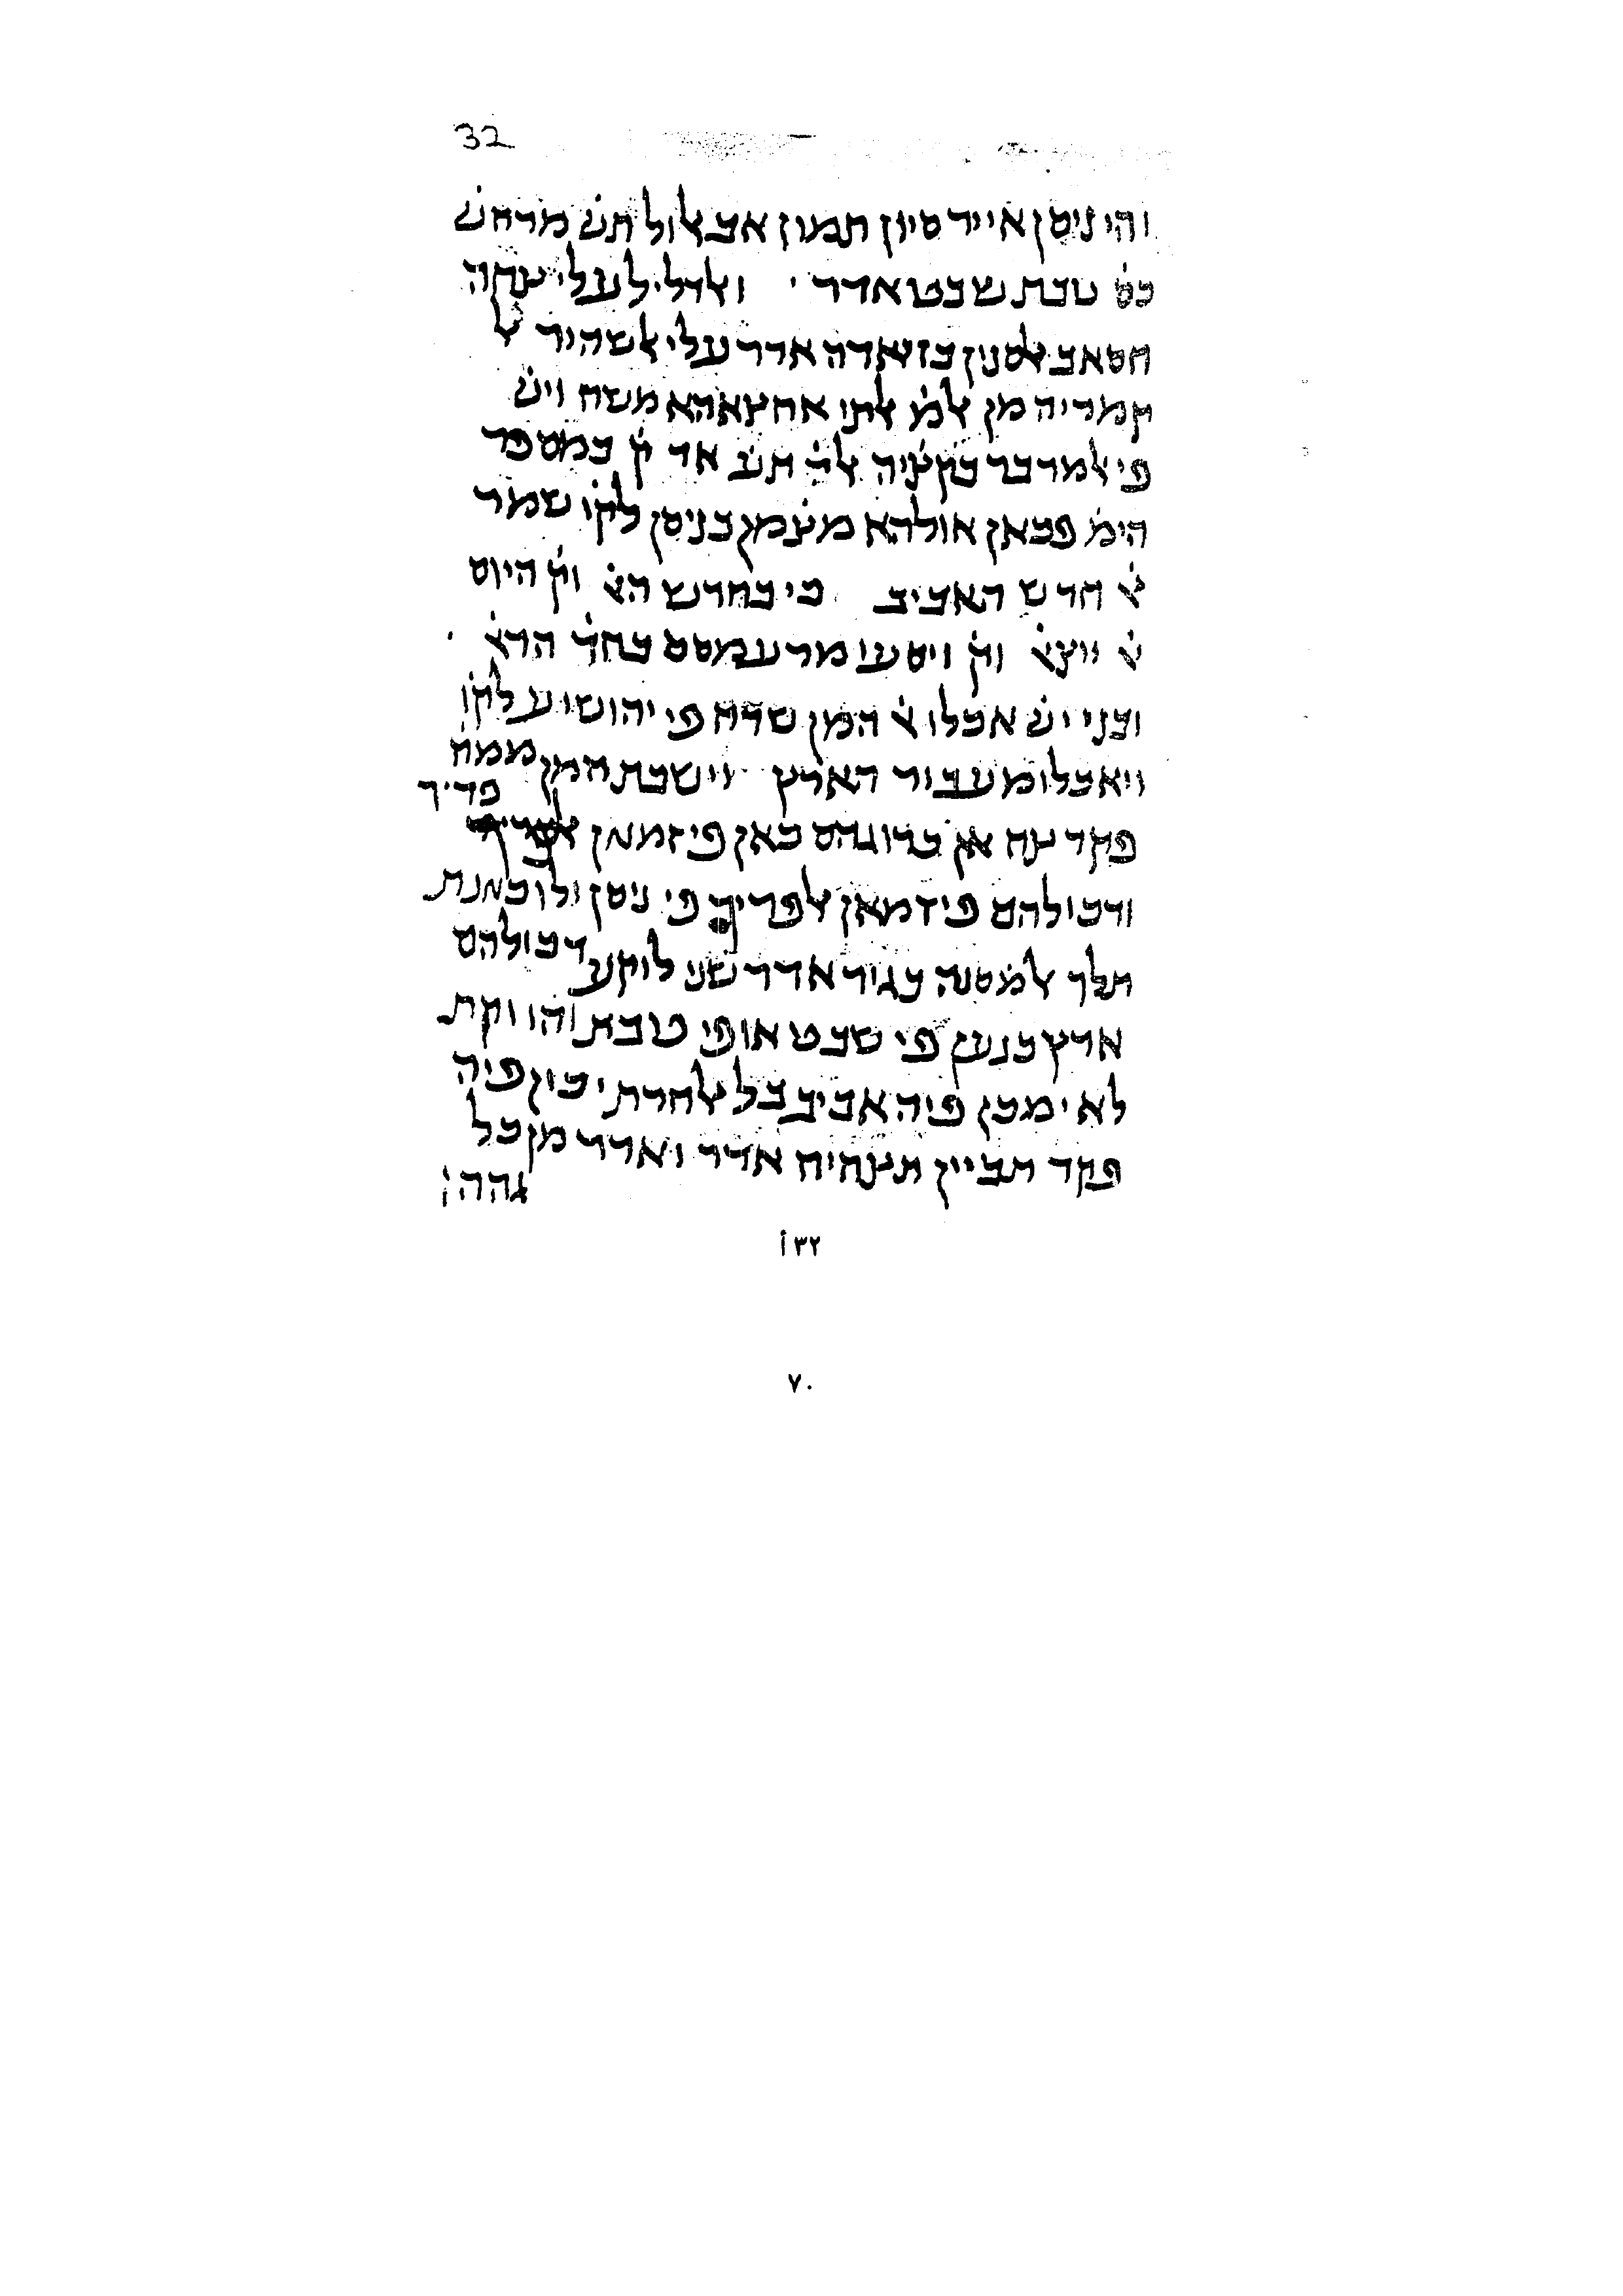 32
והי ניסן אייר סיון תמוז אב אלול תש׳ מרחש׳
כס׳ טבת שבט אדר ׳ ואלדליל עלי צחה
חסאב אלסנין בזיאדה אדר עלי אלשהור אל
קמריה מן אלמ׳ אלתי אחצאהא משה ויש׳
פי אלמדבר בקציה אלד׳ תע׳ אד ק׳ במספר
הימ׳ פכאן אולהא מע׳ מן בניסן לקו׳ שמור
א׳ חדש האביב כי בחדש הא׳ וק׳ היום
א׳ יוצא׳ וק׳ ויסעו מרעמסס בחד׳ הרא׳
ובני יש׳ אכלו א׳ המן שרח פי יהושוע לקו׳
ויאכלו מעבור הארץ וישבת המן ממח׳
פקד צח אן כרוגהם כאן פי זמאן פריך
ודכולהם פי זמאן אלפריך פי ניסן ולו כאנת
תלך אלמ׳ סנה בגיר אדר שני לוקע דכולהם
ארץ כנען פי שבט או פי טבת והו וקת
לא ימכן פיה אביב בל אלחרת יכון פיה
פקד תביין תצחיח אדר ואדר מן כל
גהה׃
٣٢أ
٧٠